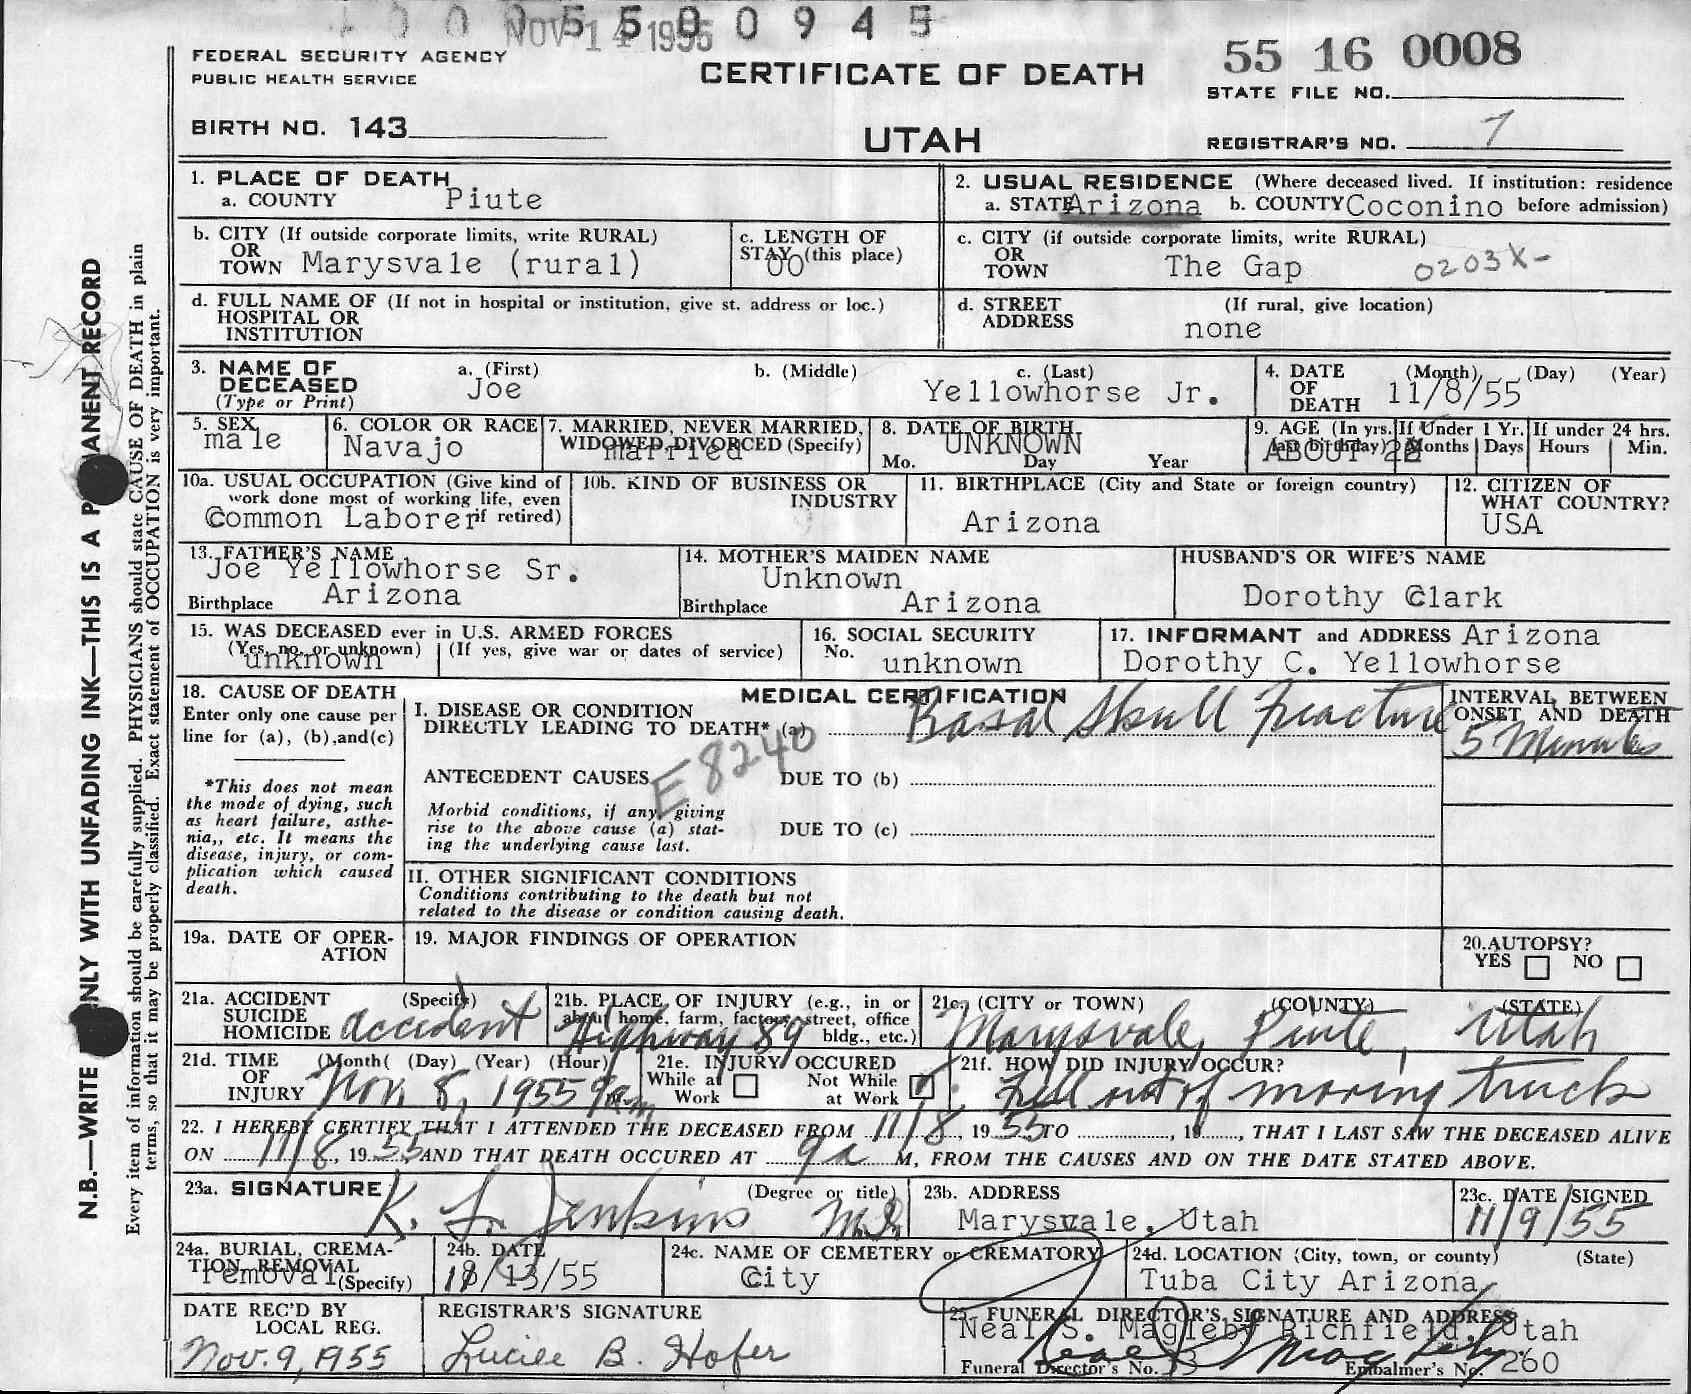 NOV 14 1955
FEDERAL SECURITY AGENCY
PUBLIC HEALTH SERVICE
CERTIFICATE OF DEATH
55 16 0008
STATE FILE NO.
BIRTH NO. 143
UTAH
REGISTRAR'S NO. 7
1. PLACE OF DEATH
a. COUNTY Piute
2. USUAL RESIDENCE (Where deceased lived. If institution: residence
a. STATE Arizona b. COUNTY Coconino before admission)
b. CITY (If outside corporate limits, write RURAL)
OR
TOWN Marysvale (rural)
c. LENGTH OF
STAY (this place)
00
c. CITY (if outside corporate limits, write RURAL)
OR
TOWN The Gap 0203X-
d. FULL NAME OF (If not in hospital or institution, give st. address or loc.)
HOSPITAL OR
INSTITUTION
d. STREET (If rural, give location)
ADDRESS none
3. NAME OF
DECEASED
(Type or Print)
a. (First)
Joe
b. (Middle)
c. (Last)
Yellowhorse Jr.
4. DATE
OF
DEATH
(Month) (Day) (Year)
11/8/55
5. SEX
male
6. COLOR OR RACE
Navajo
7. MARRIED, NEVER MARRIED,
WIDOWED, DIVORCED (Specify)
married
8. DATE OF BIRTH
UNKNOWN
Mo. Day Year
9. AGE (In yrs.
last birthday)
ABOUT
If Under 1 Yr.
Months Days
If under 24 hrs.
Hours Min.
10a. USUAL OCCUPATION (Give kind of
work done most of working life, even
if retired)
Common Laborer
10b. KIND OF BUSINESS OR
INDUSTRY
11. BIRTHPLACE (City and State or foreign country)
Arizona
12. CITIZEN OF
WHAT COUNTRY?
USA
13. FATHER'S NAME
Joe Yellowhorse Sr.
Birthplace Arizona
14. MOTHER'S MAIDEN NAME
Unknown
Birthplace Arizona
HUSBAND'S OR WIFE'S NAME
Dorothy Clark
15. WAS DECEASED ever in U.S. ARMED FORCES
(Yes, no, or unknown) (If yes, give war or dates of service)
unknown
16. SOCIAL SECURITY
No. unknown
17. INFORMANT and ADDRESS Arizona
Dorothy C. Yellowhorse
18. CAUSE OF DEATH
Enter only one cause per
line for (a), (b), and (c)
*This does not mean
the mode of dying, such
as heart failure, asthe-
nia,, etc. It means the
disease, injury, or com-
plication which caused
death.
MEDICAL CERTIFICATION
I. DISEASE OR CONDITION
DIRECTLY LEADING TO DEATH* (a) Basal Skull Fracture
E8240
ANTECEDENT CAUSES DUE TO (b)
Morbid conditions, if any, giving
rise to the above cause (a) stat-
ing the underlying cause last.
DUE TO (c)
II. OTHER SIGNIFICANT CONDITIONS
Conditions contributing to the death but not
related to the disease or condition causing death.
INTERVAL BETWEEN
ONSET AND DEATH
5 Minutes
19a. DATE OF OPER-
ATION
19. MAJOR FINDINGS OF OPERATION
20. AUTOPSY?
YES NO
21a. ACCIDENT (Specify)
SUICIDE
HOMICIDE accident
21b. PLACE OF INJURY (e.g., in or
about home, farm, factory, street, office
bldg., etc.)
Highway 89
21c. (CITY or TOWN) (COUNTY) (STATE)
Marysvale, Piute, Utah
21d. TIME (Month( (Day) (Year) (Hour)
OF
INJURY Nov. 8, 1955 9am
21e. INJURY OCCURED
While at Work
Not While at Work
21f. HOW DID INJURY OCCUR?
Fell out of moving truck
22. I HEREBY CERTIFY THAT I ATTENDED THE DECEASED FROM 11/8, 1955 TO , 19 , THAT I LAST SAW THE DECEASED ALIVE
ON 11/8, 1955 AND THAT DEATH OCCURED AT 9a M, FROM THE CAUSES AND ON THE DATE STATED ABOVE.
23a. SIGNATURE (Degree or title)
K. L. Jenkins M.D.
23b. ADDRESS
Marysvale, Utah
23c. DATE SIGNED
11/9/55
24a. BURIAL, CREMA-
TION, REMOVAL
(Specify)
removal
24b. DATE
/13/55
24c. NAME OF CEMETERY or CREMATORY
City
24d. LOCATION (City, town, or county) (State)
Tuba City Arizona
DATE REC'D BY
LOCAL REG.
Nov. 9, 1955
REGISTRAR'S SIGNATURE
Lucile B. Hofer
25. FUNERAL DIRECTOR'S SIGNATURE AND ADDRESS
Neal S. Magleby Richfield, Utah
Funeral Director's No. Embalmer's No. 260
N.B.—WRITE ONLY WITH UNFADING INK—THIS IS A PERMANENT RECORD
Every item of information should be carefully supplied. PHYSICIANS should state CAUSE OF DEATH in plain
terms, so that it may be properly classified. Exact statement of OCCUPATION is very important.